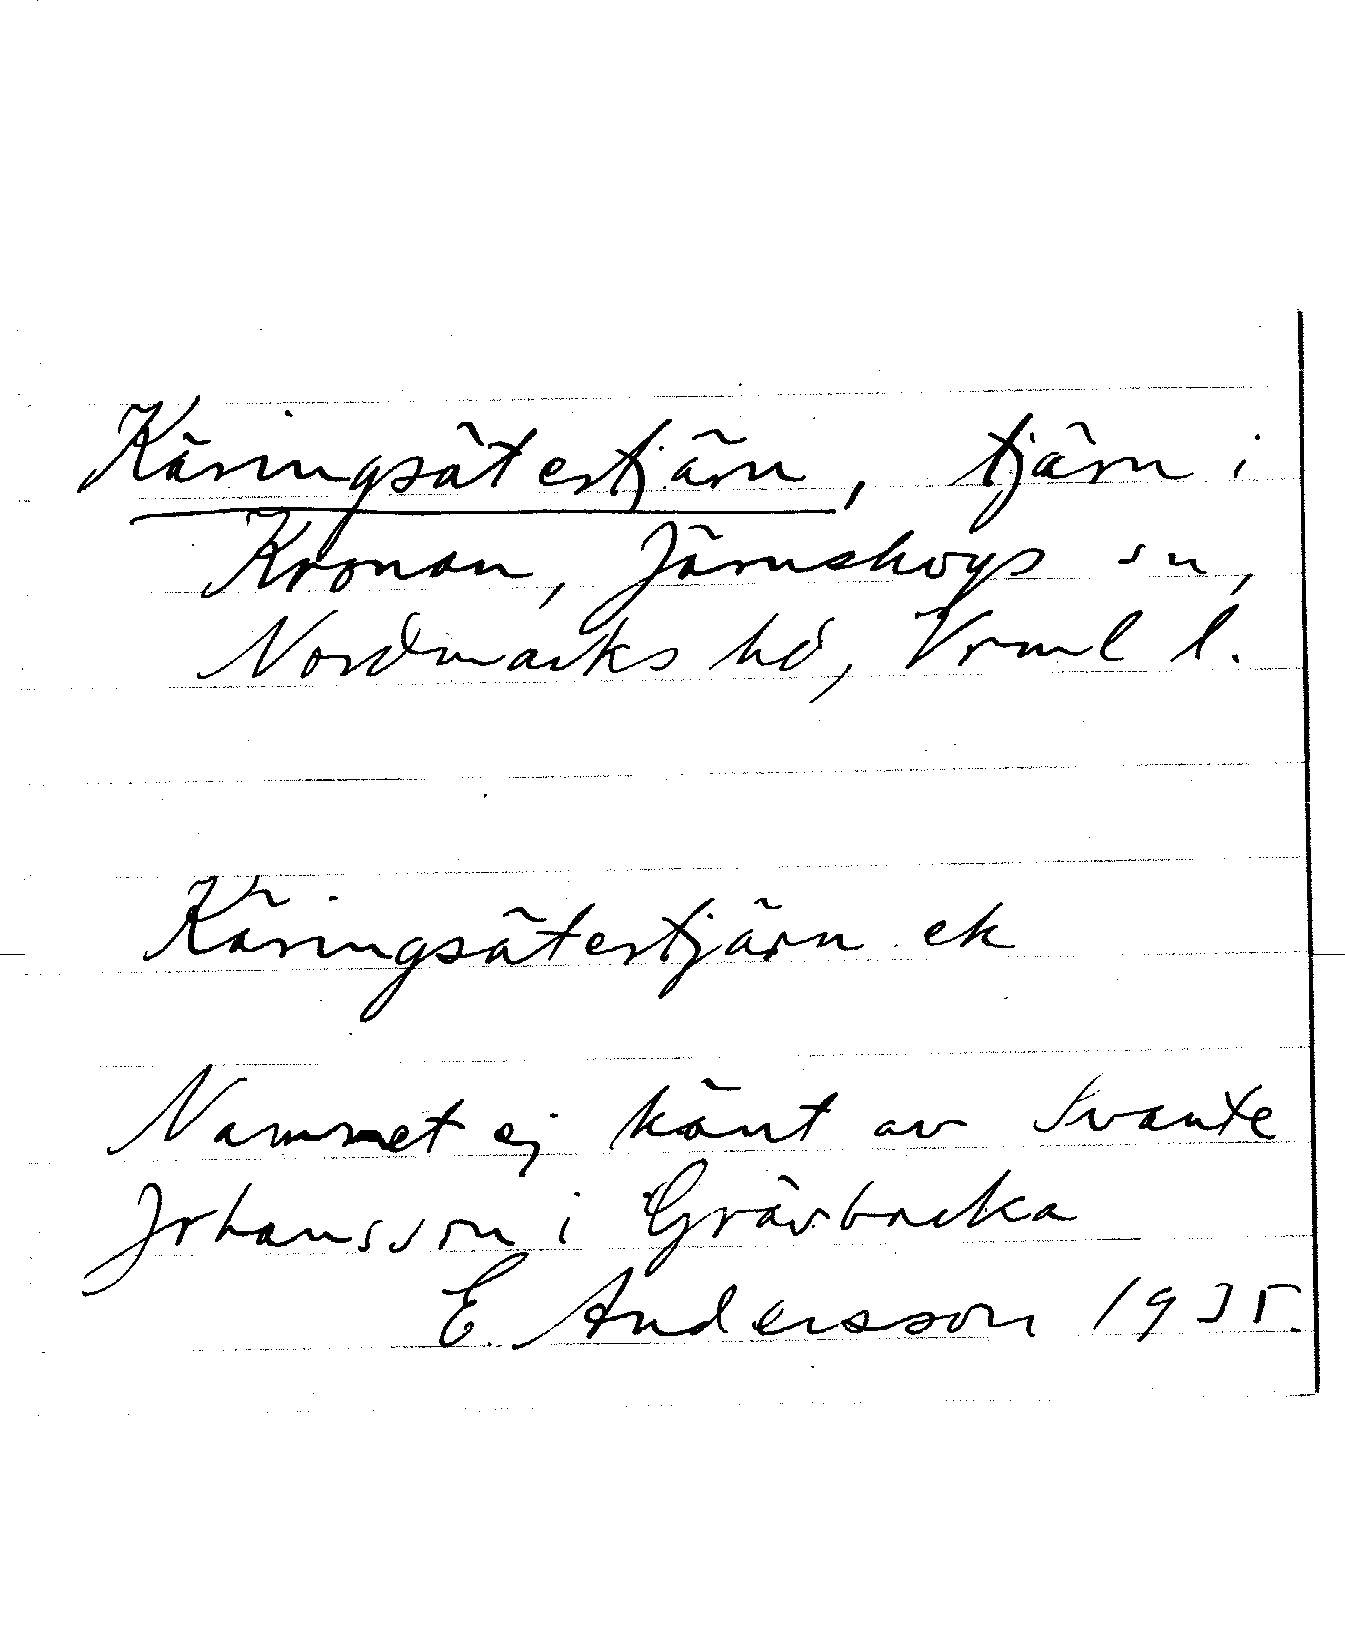 Käringsätertjärn, tjärn i
Kronan, Järnskogs sn,
Nordmarks hd, Vrml l.
Käringsätertjärn ek
Nammet ej känt av Svante
Johansson i Grävbacka
E. Andersson 1935.